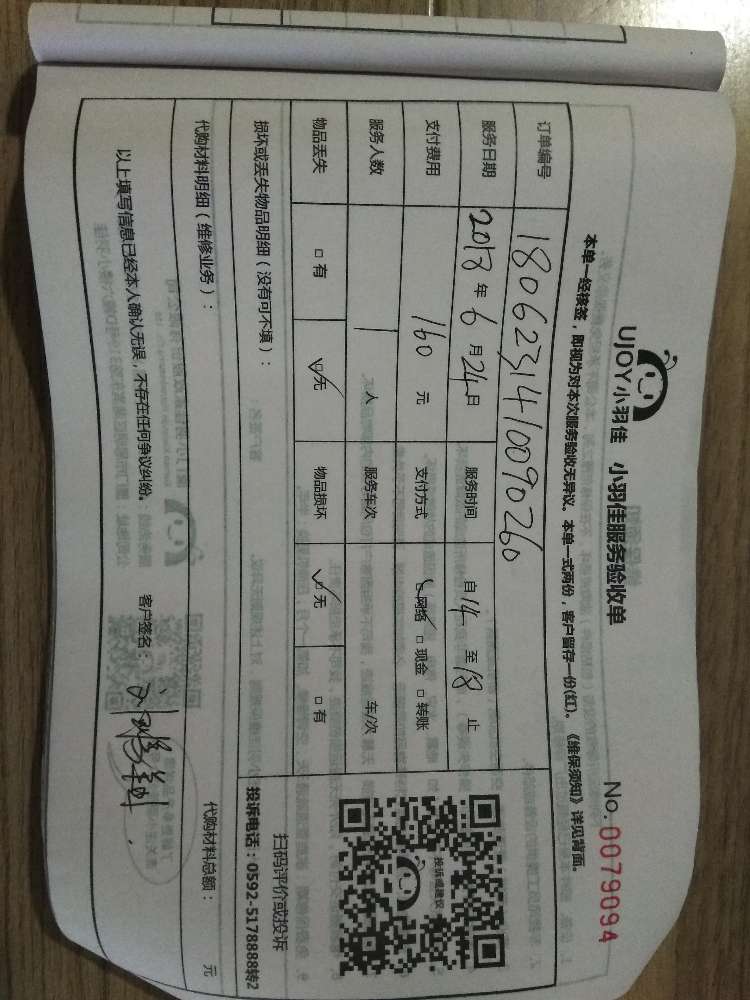 UJOY小羽佳 小羽佳服务验收单
No. 0079094
本单一经核签，即视为对本次服务验收无异议。本单一式两份，客户留存一份(红)。《维保须知》详见背面。
订单编号 1806231410090260
服务日期 2018年6月24日 服务时间 自14至18止
支付费用 160元 支付方式 ☑网络 □现金 □转账
服务人数 1人 服务车次 车/次
物品丢失 □有 ☑无 物品损坏 ☑无 □有
投诉或建议
扫码评价或投诉
损坏或丢失物品明细（没有可不填）：
投诉电话：0592-5178888转2
代购材料明细（维修业务）：
代购材料总额： 元
以上填写信息已经本人确认无误，不存在任何争议纠纷。 客户签名：